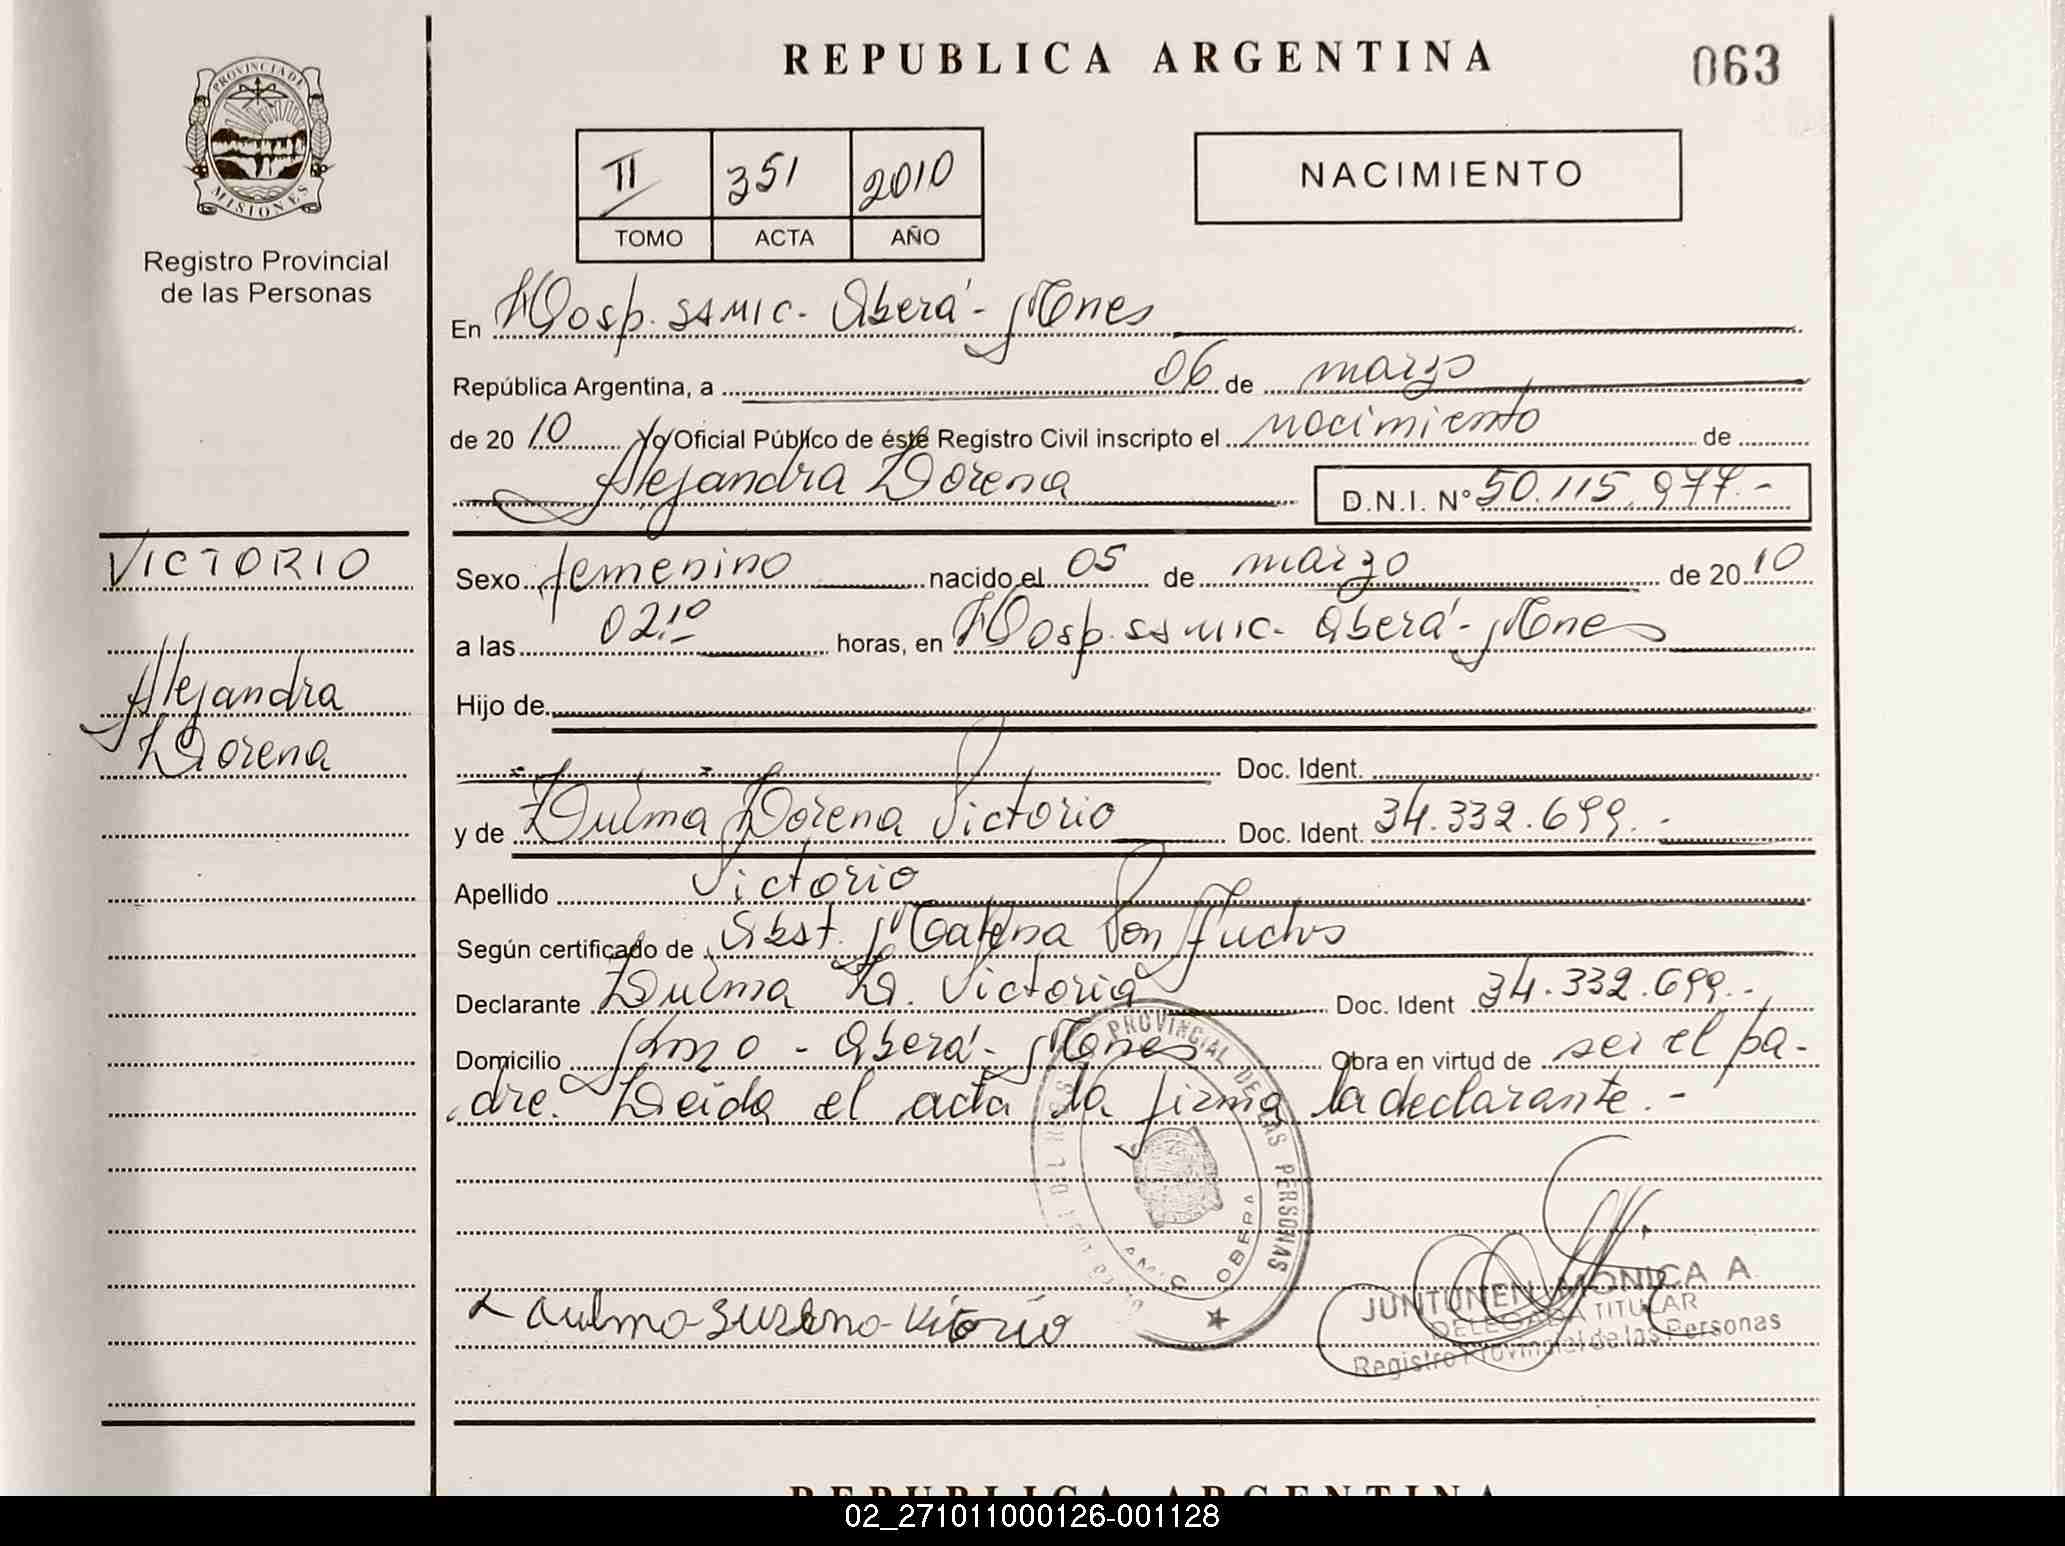 REPUBLICA ARGENTINA
063
PROVINCIA DE
MISIONES
Registro Provincial
de las Personas
II 351 2010
TOMO ACTA AÑO
NACIMIENTO
En Hosp. SSMIC. Oberá - Mnes
República Argentina, a 06 de marzo
de 20 10 Yo Oficial Público de éste Registro Civil inscripto el nacimiento de
Alejandra Lorena
D.N.I. N° 50.115.977.-
VICTORIO
Alejandra
Lorena
Sexo femenino nacido el 05 de marzo de 20 10
a las 02:10 horas, en Hosp. SSMIC. Oberá - Mnes
Hijo de
Doc. Ident.
y de Zulma Lorena Victorio Doc. Ident. 34.332.699.-
Apellido Victorio
Según certificado de Obst. Malena Von Fuchs
Declarante Zulma L. Victorio Doc. Ident 34.332.699.-
Domicilio Oberá - Mnes Obra en virtud de ser el pa-
dre. Leida el acta la firma la declarante.-
PROVINCIAL DE LAS PERSONAS
OBERA
JUNTUNEN MONICA A
DELEGADA TITULAR
Registro Provincial de las Personas
REPUBLICA ARGENTINA
02_271011000126-001128